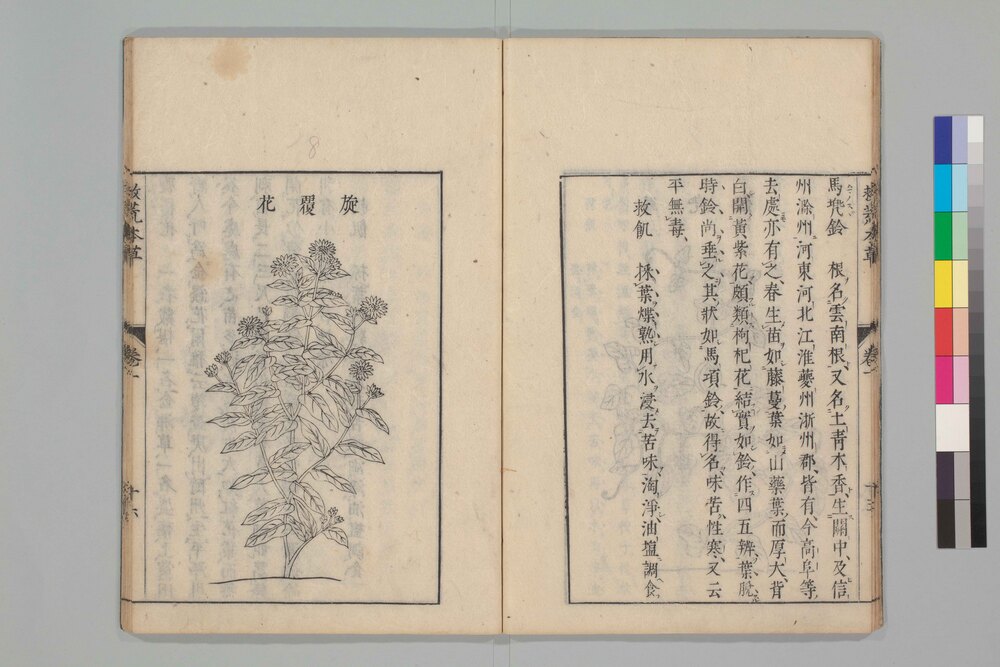 馬兜鈴 根名雲南根又名土青木香生關中及信
州滁州河東河北江淮夔州浙州郡皆有今高阜等
去處亦有之春生苗如藤蔓葉如山藥葉而厚大背
白開黃紫花頗類枸杞花結實如鈴作四五瓣葉脫
時鈴尚垂之其狀如馬項鈴故得名味苦性寒又云
平無毒
救飢 採葉煠熟用水浸去苦味淘淨油鹽調食
旋覆花
救荒本草
卷一
十六